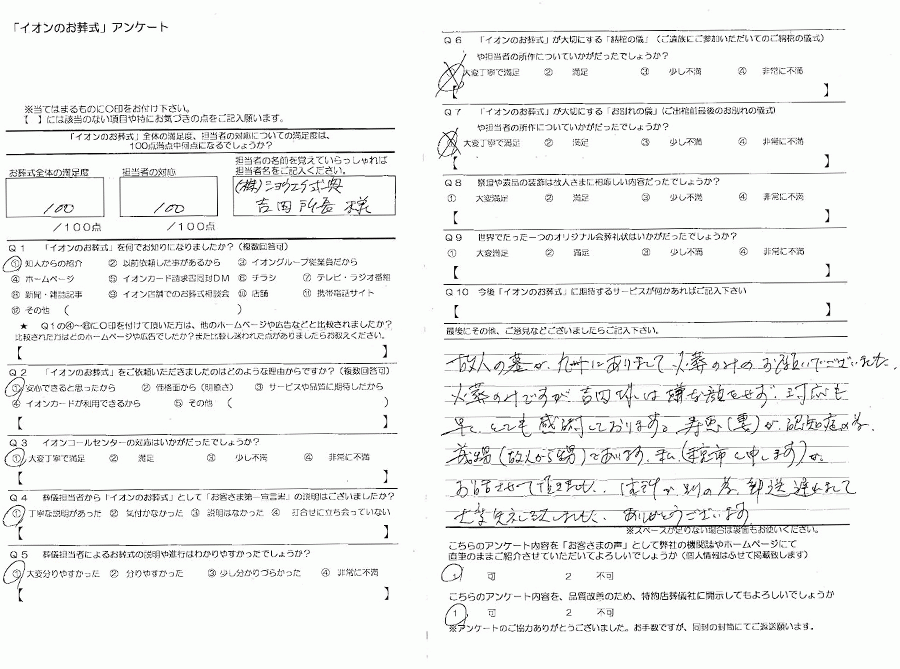 「イオンのお葬式」アンケート
※当てはまるものに○印をお付け下さい。
【　】には該当のない項目や特にお気づきの点をご記入願います。
「イオンのお葬式」全体の満足度、担当者の対応についての満足度は、
100点満点中何点になるでしょうか？
お葬式全体の満足度
担当者の対応
担当者の名前を覚えていらっしゃれば
担当者名をご記入ください。
100
100
(株)ショウエイ式典
吉田所長 様
／100点
／100点
Q1 「イオンのお葬式」を何でお知りになりましたか？（複数回答可）
① 知人からの紹介 ② 以前依頼した事があるから ③ イオングループ従業員だから
④ ホームページ ⑤ イオンカード請求書同封DM ⑥ チラシ ⑦ テレビ・ラジオ番組
⑧ 新聞・雑誌記事 ⑨ イオン店舗でのお葬式相談会 ⑩ 店舗 ⑪ 携帯電話サイト
⑫ その他（ ）
★ Q1の④～⑫に○印を付けて頂いた方は、他のホームページや広告などと比較されましたか？
比較された方はどのホームページや広告でしたか？また比較し迷われた点がありましたらお教えください。
【 】
Q2 「イオンのお葬式」をご依頼いただきましたのはどのような理由からですか？（複数回答可）
① 安心できると思ったから ② 価格面から（明瞭さ） ③ サービスや品質に期待したから
④ イオンカードが利用できるから ⑤ その他（ ）
【 】
Q3 イオンコールセンターの対応はいかがだったでしょうか？
① 大変丁寧で満足 ② 満足 ③ 少し不満 ④ 非常に不満
【 】
Q4 葬儀担当者から「イオンのお葬式」として「お客さま第一宣言」の説明はございましたか？
① 丁寧な説明があった ② 気付かなかった ③ 説明はなかった ④ 打合せに立ち会っていない
【 】
Q5 葬儀担当者によるお葬式の説明や進行はわかりやすかったでしょうか？
① 大変分りやすかった ② 分りやすかった ③ 少し分かりづらかった ④ 非常に不満
【 】
Q6 「イオンのお葬式」が大切にする「納棺の儀」（ご遺族にご参加いただいてのご納棺の儀式）
や担当者の所作についていかがだったでしょうか？
大変丁寧で満足 ② 満足 ③ 少し不満 ④ 非常に不満
【 】
Q7 「イオンのお葬式」が大切にする「お別れの儀」（ご出棺前最後のお別れの儀式）
や担当者の所作についていかがだったでしょうか？
大変丁寧で満足 ② 満足 ③ 少し不満 ④ 非常に不満
【 】
Q8 祭壇や装品の装飾は故人さまに相応しい内容だったでしょうか？
① 大変満足 ② 満足 ③ 少し不満 ④ 非常に不満
【 】
Q9 世界でたった一つのオリジナル会葬礼状はいかがだったでしょうか？
① 大変満足 ② 満足 ③ 少し不満 ④ 非常に不満
【 】
Q10 今後「イオンのお葬式」に期待するサービスが何かあればご記入下さい
【 】
最後にその他、ご意見などございましたらご記入下さい。
故人の墓が、九州にありまして、火葬のみのお願いでございました。
火葬のみですが 吉田様は嫌な顔をせず、対応も
早く、とても感謝しております。(妻)が、認知症の為、
(故人から甥)であります、私(と申します)が、
お話させて頂きました。別の為、郵送遅れまして
大変失礼致しました。ありがとうございます。
※スペースが足りない場合は裏面もお使いください。
こちらのアンケート内容を「お客さまの声」として弊社の機関誌やホームページにて
直筆のままご紹介させていただいてよろしいでしょうか（個人情報はふせて掲載致します）
1 可 2 不可
こちらのアンケート内容を、品質改善のため、特約店葬儀社に開示してもよろしいでしょうか
1 可 2 不可
※アンケートのご協力ありがとうございました。お手数ですが、同封の封筒にてご返送願います。